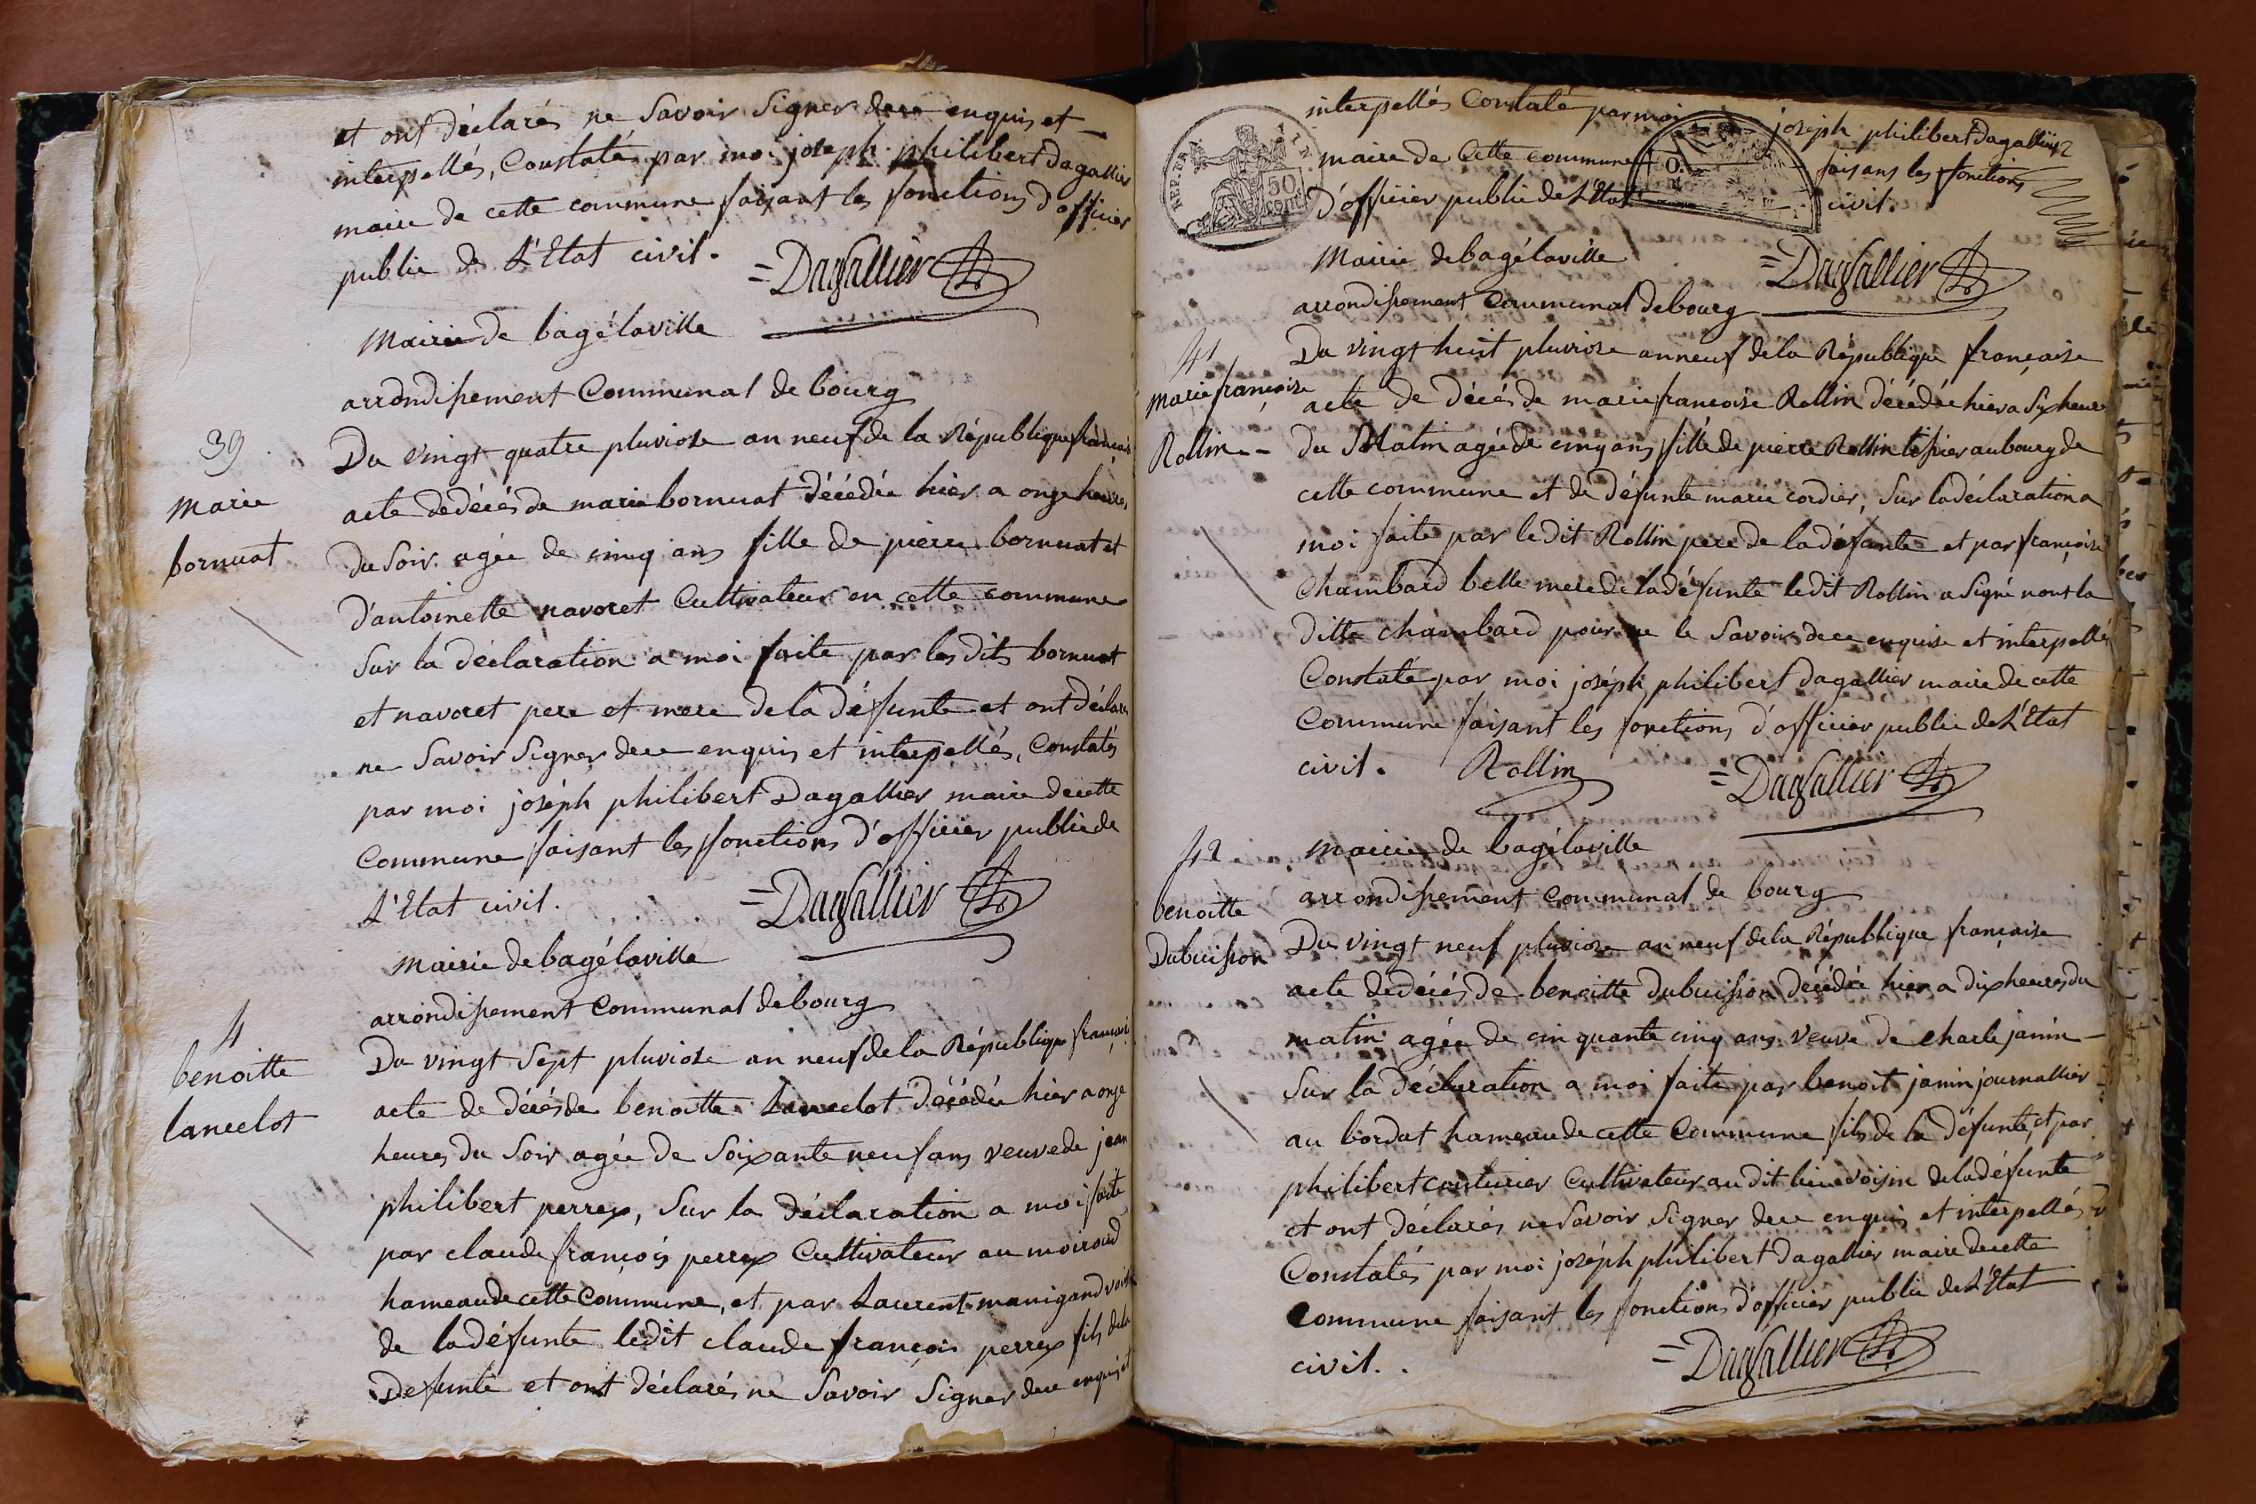 et ont déclarés ne Savoir Signer de ce enquis et
interpellés, Constaté par moi joseph philibert Dagallier
maire de cette commune faisant les fonctions d'officier
public de L'Etat civil.
=Dagallier
Mairie de bagélaville
arrondissement Communal de bourg
39
Marie
bornuat
Du vingt quatre pluviose an neuf de la République française
acte de décés de marie bornuat décédée hier a onze heures
du Soir agée de cinq ans fille de pierre bornuat et
d'antoinette navoret Cultivateur en cette commune
Sur la déclaration a moi faite par les dits bornuat
et navoret pere et mere de la défunte et ont déclaré
ne Savoir Signer de ce enquis et interpellés, Constatés
par moi joséph philibert Dagallier maire de cette
Commune faisant les fonctions d'officier public de
L'Etat civil.
=Dagallier
Mairie de bagélaville
arrondissement Communal de bourg
4
benoitte
lancelot
Du vingt Sept pluviose an neuf de la République française
acte de décés de benoitte Lancelot décédée hier a onze
heures du Soir agée de Soixante neuf ans veuve de jean
philibert perrex, Sur la déclaration a moi faite
par claude françois perrex Cultivateur au moiroud
hameau de cette Commune, et par Laurent manigand voisin
de la défunte ledit claude francois perrex fils de la
Defunte et ont déclarés ne Savoir Signer de ce enquis et
interpellés Constaté par moi joseph philibert Dagallier
maire de Cette commune faisans les fonctions
d'officier public de L'Etat civil.
IMP. FAN
50
cent.
=Dagallier
Mairie de bagélaville
arrondissement Communal de bourg
41
Marie françoise
Rollin
Du vingt huit pluviose an neuf de la République française
acte de décés de marie francoise Rollin décédée hier a Six heures
du Matin agée de cinq ans fille de pierre Rollin tissier au bourg de
cette commune et de défunte marie cordier, Sur la déclaration a
moi faite par ledit Rollin pere de la défunte et par françoise
Chambard belle mere de la défunte ledit Rollin a Signé non la
ditte chambard pour ne le Savoir de ce enquise et interpellés
Constaté par moi joséph philibert Dagallier maire de cette
Commune faisant les fonctions d'officier public de L'Etat
civil. Rollin =Dagallier
42
benoitte
Dubuisson
Mairie de bagélaville
arrondissement Communal de bourg
Du vingt neuf pluviose an neuf de la République française
acte de décés de benoitte dubuisson décédée hier a dix heures du
matin agée de cinquante cinq ans veuve de charle janin
Sur la déclaration a moi faite par benoit janin journallier
au bordat hameau de cette Commune fils de la défunte, et par
philibert couturier Cultivateur au dit lieu voisin de la défunte
et ont déclarés ne Savoir Signer de ce enquis et interpellés
Constatés par moi joséph philibert Dagallier maire de cette
Commune faisant les fonctions d'officier public de L'Etat
civil.
=Dagallier